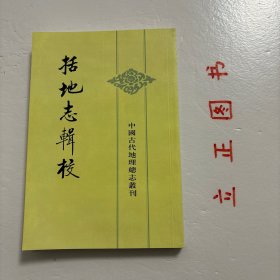 括地志輯校
中國古代地理總志叢刊
立正图书